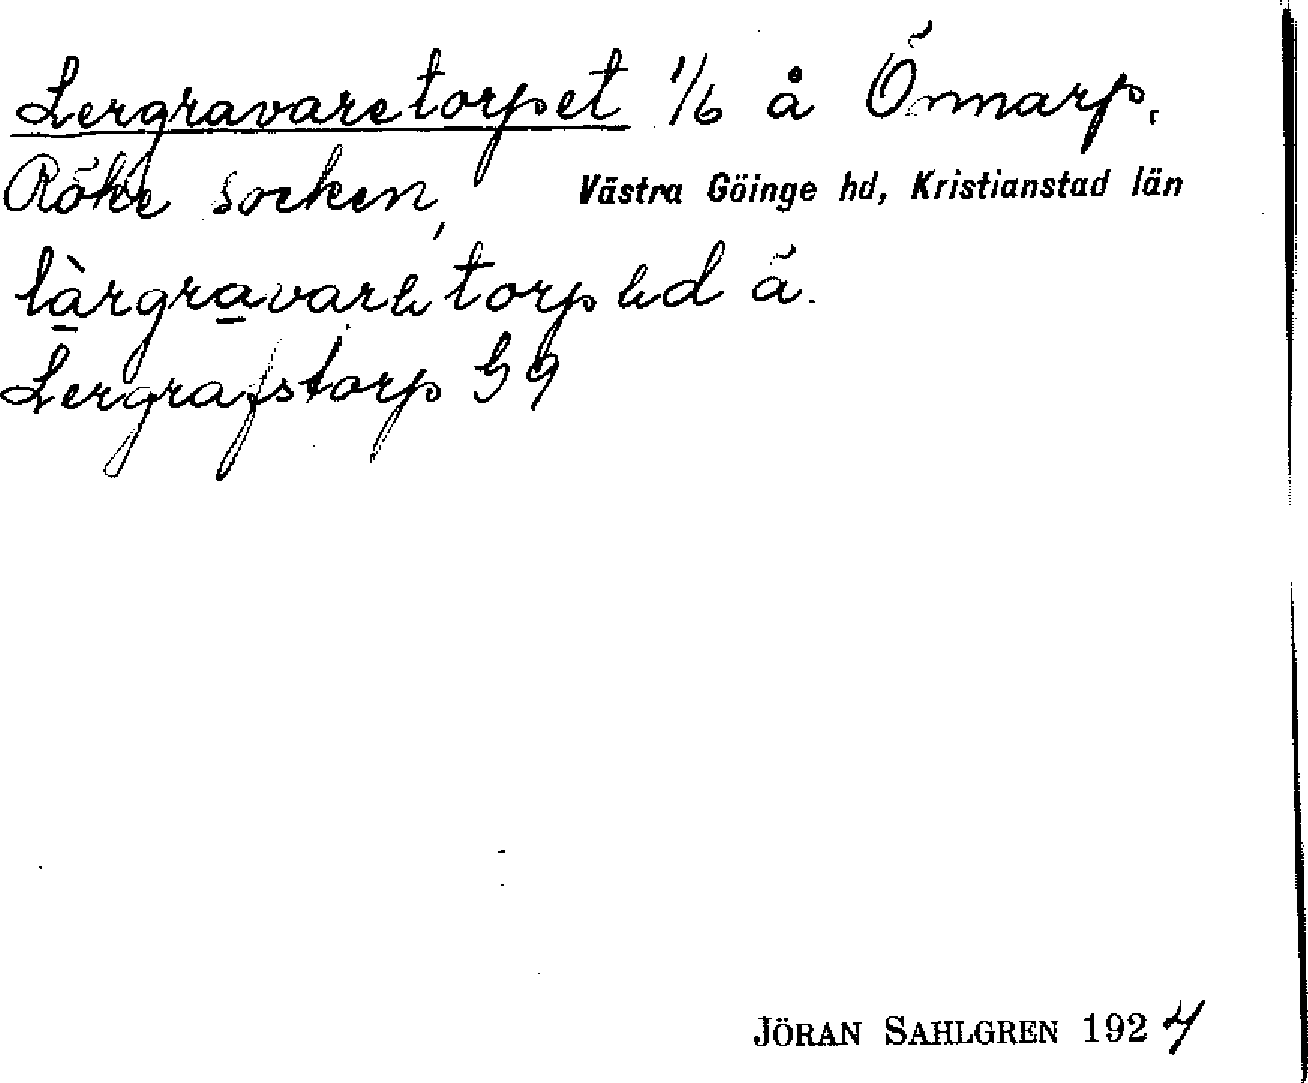 Lergravaretorpet 1/6 å Önnarp,
Röke socken, Västra Göinge hd, Kristianstad län
làrgravarə torpəd ä.
Lergrafstorp G9
JÖRAN SAHLGREN 1924